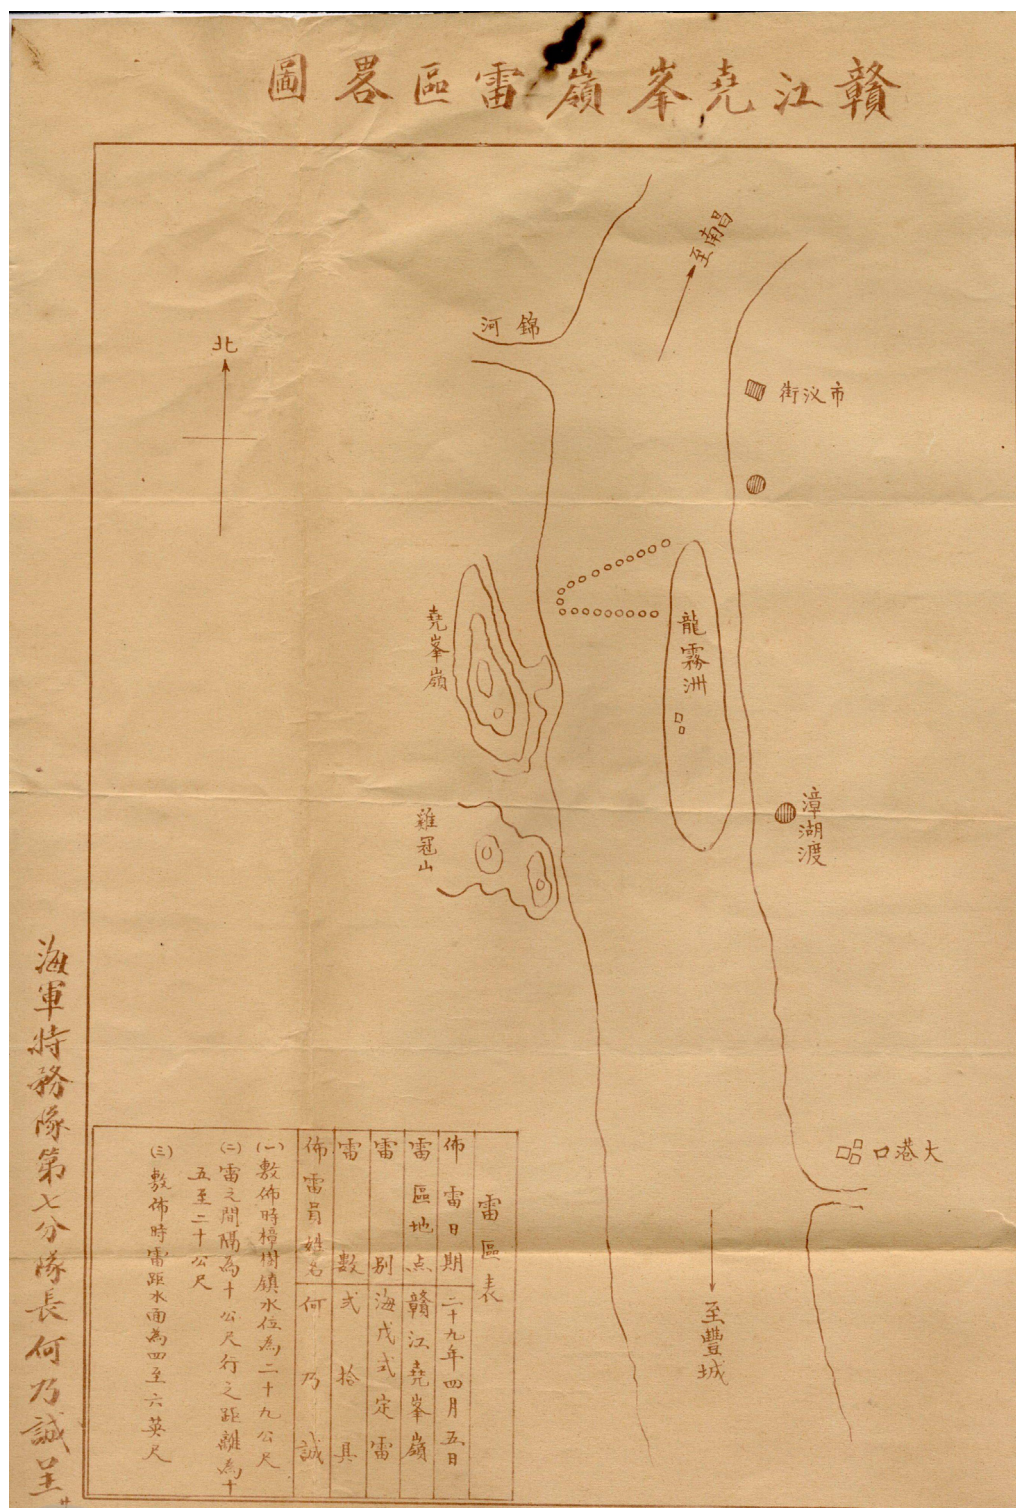 贛江堯峯嶺雷區畧圖
至南昌
錦河
北
市汊街
堯峯嶺
龍霧洲
漳湖渡
雞冠山
大港口
至豐城
雷區表
佈雷日期 二十九年四月五日
雷區地点 贛江堯峯嶺
雷別 海戊式定雷
雷數 弍拾具
佈雷員姓名 何乃誠
(一)敷佈時樟樹鎮水位為二十九公尺
(二)雷之間隔為十公尺行之距離為十
五至二十公尺
(三)敷佈時雷距水面為四至六英尺
海軍特務隊第七分隊長何乃誠呈